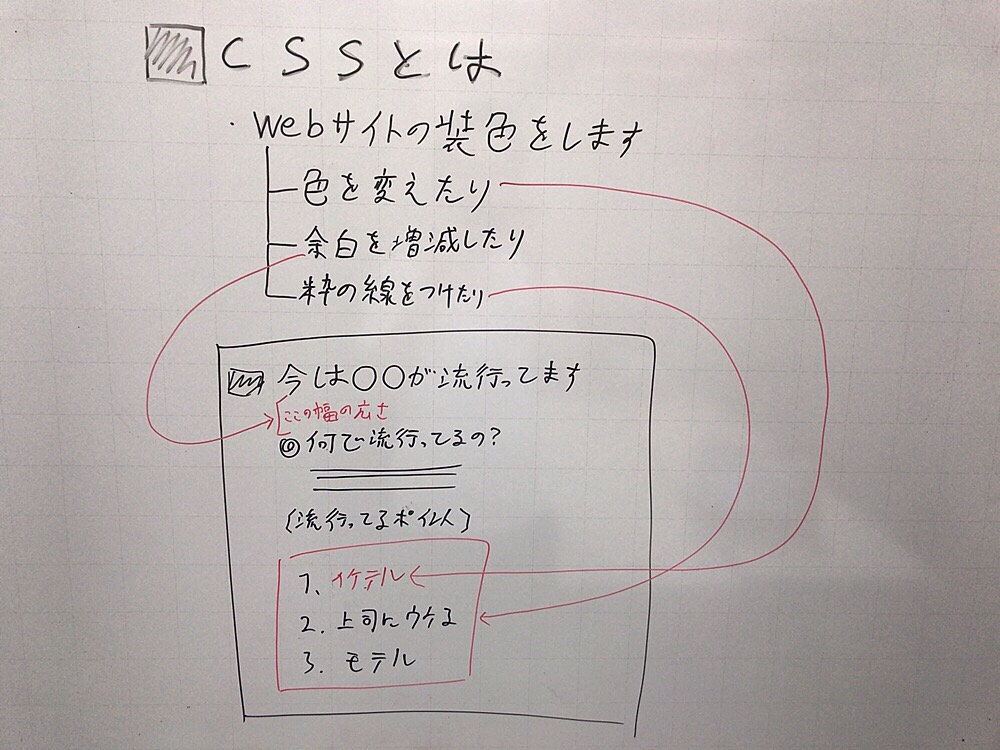 CSSとは
・Webサイトの装色をします
色を変えたり
余白を増減したり
粋の線をつけたり
今は〇〇が流行ってます
ここの幅の広さ
◎何で流行ってるの?
〔流行ってるポイント〕
1. イケテル
2. 上司にウケる
3. モテル